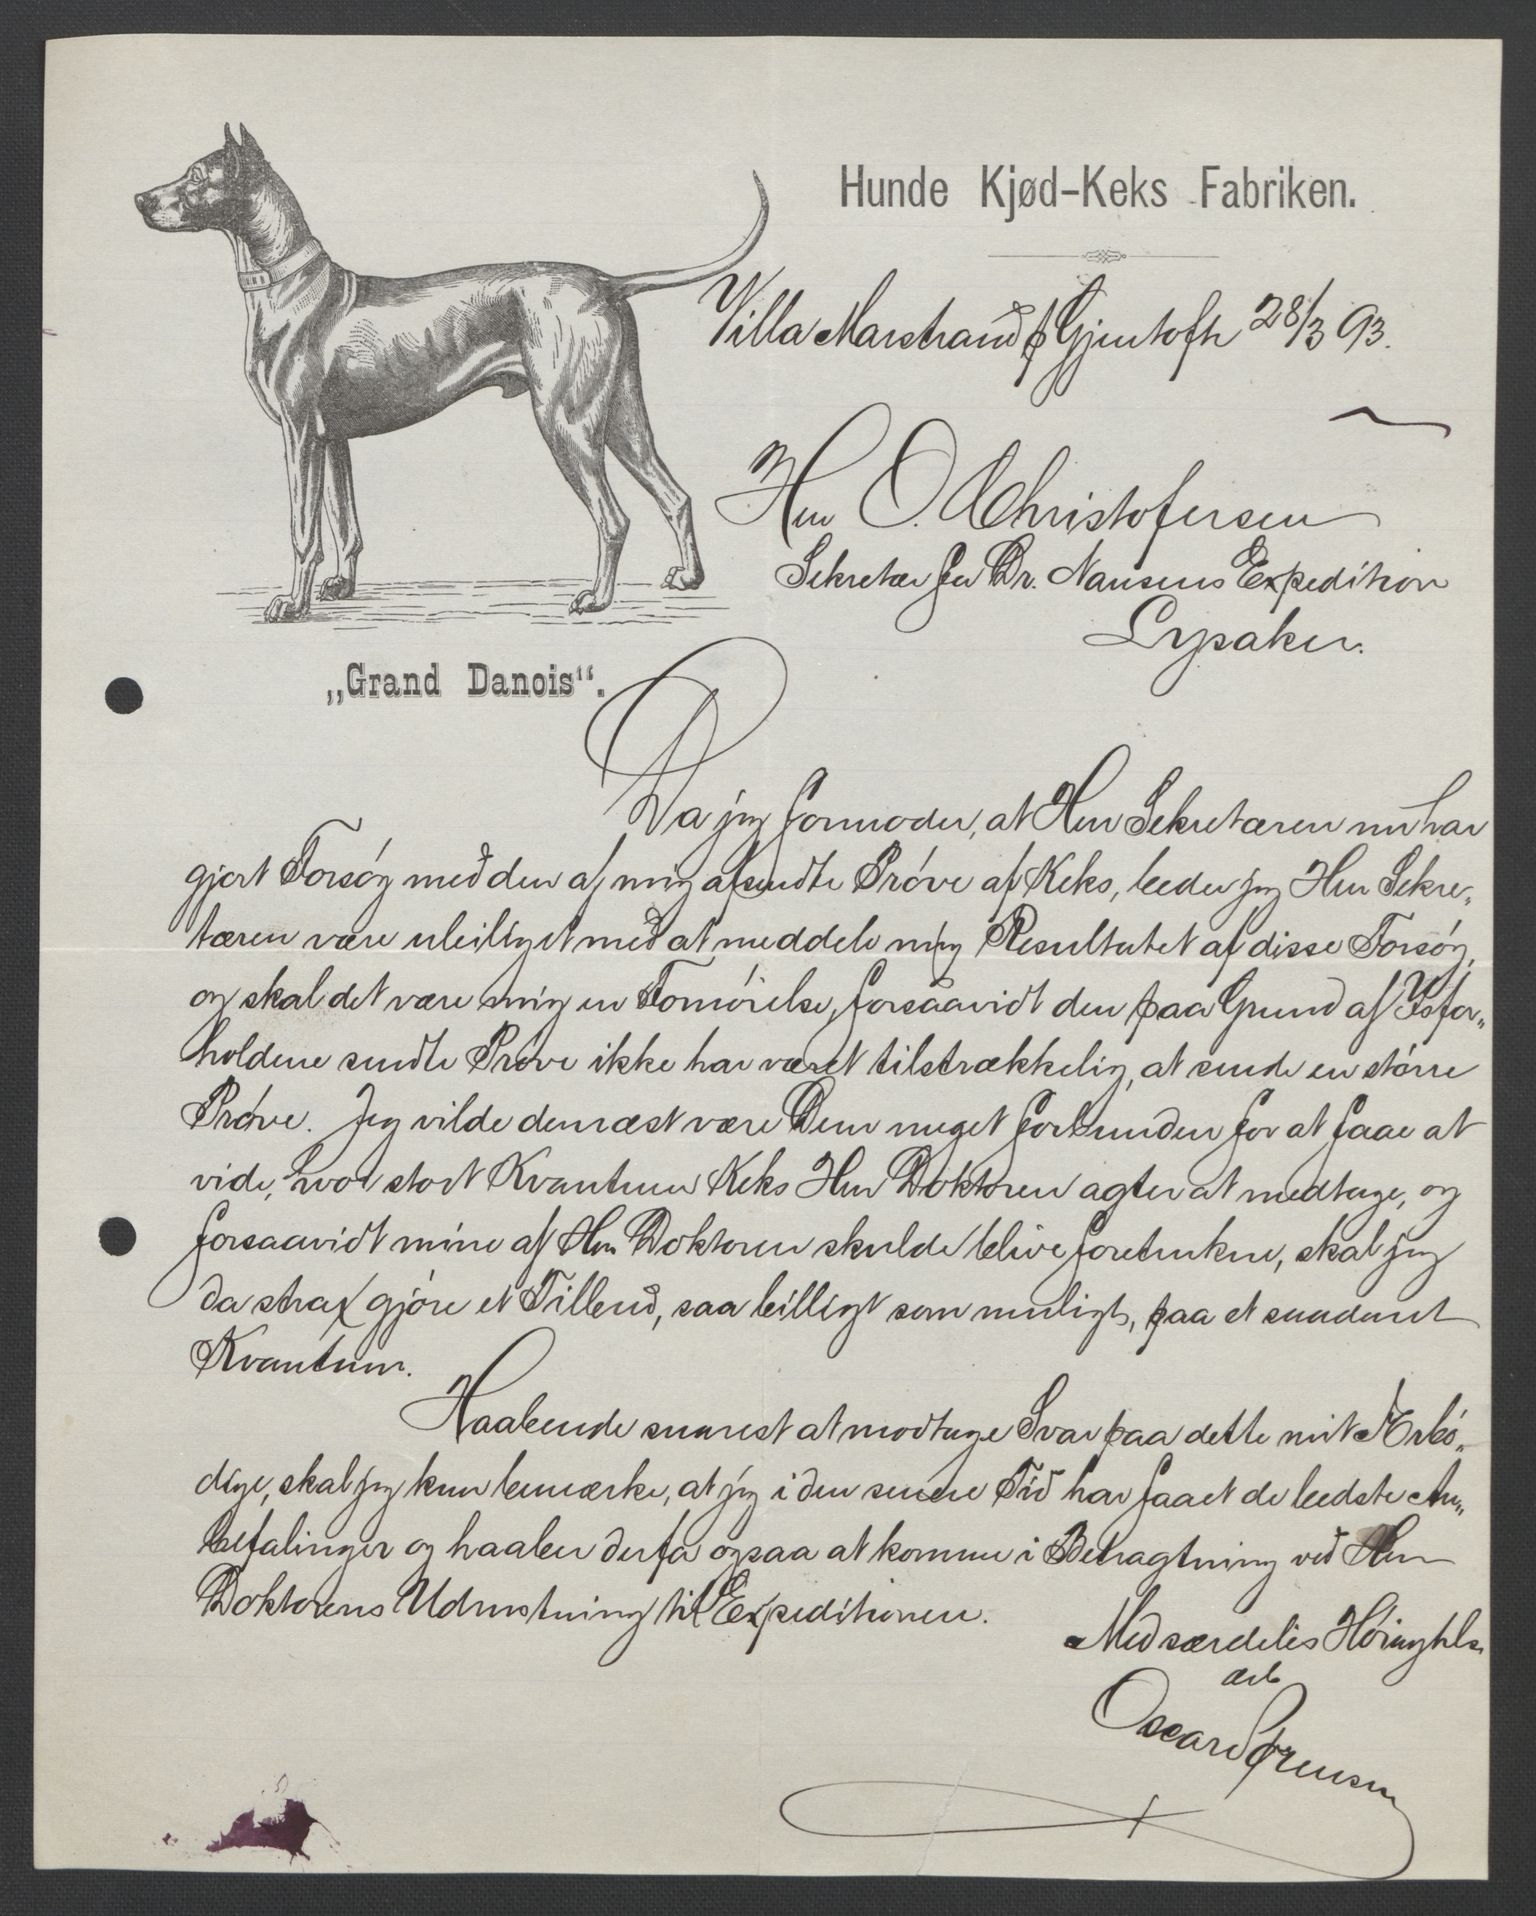 Hunde Kjød-Keks Fabriken.
Villa Marstrand p Gjentofte 28/3 93.
Herr O. Christofersen
Sekretær for Dr. Nansens Expedition
Lysaker.
„Grand Danois“.
Da jeg formoder, at Herr Sekretæren nu har
gjort Forsøg med den af mig afsendte Prøve af Keks, beder jeg Herr Sekre-
tæren være uleiliget med at meddele mig Resultatet af disse Forsøg,
og skal det være mig en Fornøielse, forsaavidt den paa Grund af Isfor-
holdene sendte Prøve ikke har været tilstrækkelig, at sende en større
Prøve. Jeg vilde dernæst være Dem meget forbunden for at faae at
vide, hvor stort Kvantum Keks Herr Doktoren agter at medtage, og
forsaavidt mine af Hr. Doktoren skulde blive foretrukne, skal jeg
da strax gjøre et Tilbud, saa billigt som muligt, paa et saadant
Kvantum.
Haabende snarest at modtage Svar paa dette mit Ærbø-
dige, skal jeg kun bemærke, at jeg i den senere Tid har faaet de bedste An-
befalinger og haaber derfor ogsaa at komme i Betragtning ved Herr
Doktorens Udrustning til Expeditionen.
Med særdeles Høiagtelse
ærb
Oscar Sørensen